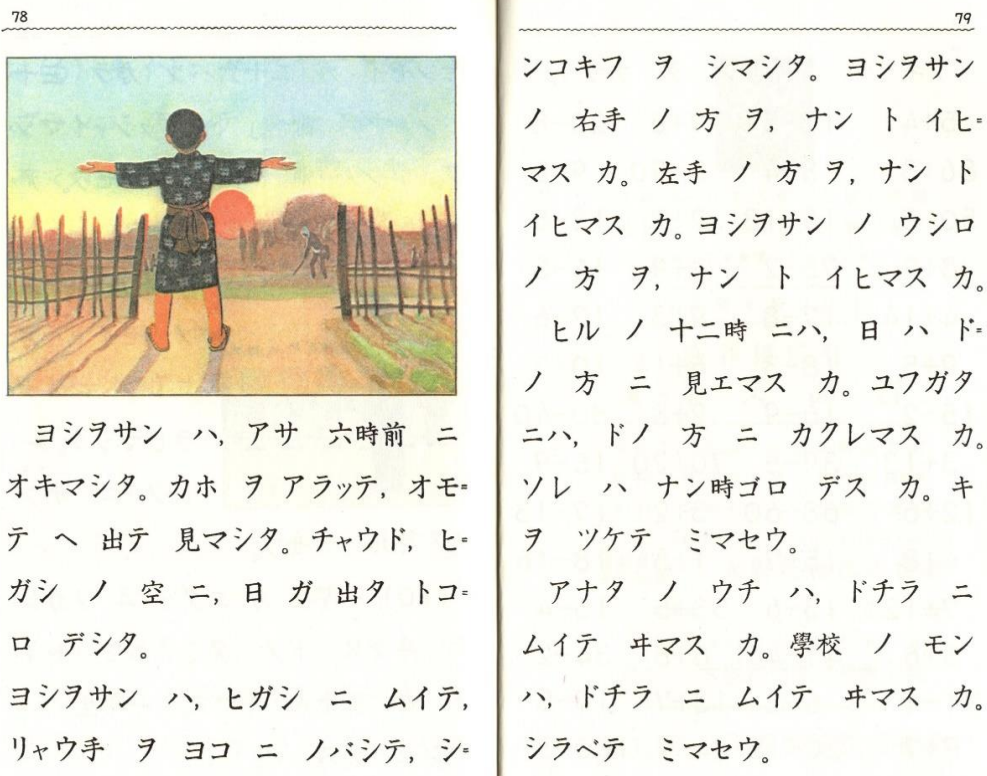 78
ヨシヲサン ハ, アサ 六時前 ニ
オキマシタ。カホ ヲ アラッテ, オモ゠
テ ヘ 出テ 見マシタ。チャウド, ヒ゠
ガシ ノ 空 ニ, 日 ガ 出タ トコ゠
ロ デシタ。
ヨシヲサン ハ, ヒガシ ニ ムイテ,
リャウ手 ヲ ヨコ ニ ノバシテ, シ゠
79
ンコキフ ヲ シマシタ。ヨシヲサン
ノ 右手 ノ 方 ヲ, ナン ト イヒ゠
マス カ。左手 ノ 方 ヲ, ナン ト
イヒマス カ。ヨシヲサン ノ ウシロ
ノ 方 ヲ, ナン ト イヒマス カ。
ヒル ノ 十二時 ニハ, 日 ハ ド゠
ノ 方 ニ 見エマス カ。ユフガタ
ニハ, ドノ 方 ニ カクレマス カ。
ソレ ハ ナン時ゴロ デス カ。キ
ヲ ツケテ ミマセウ。
アナタ ノ ウチ ハ, ドチラ ニ
ムイテ ヰマス カ。學校 ノ モン
ハ, ドチラ ニ ムイテ ヰマス カ。
シラベテ ミマセウ。